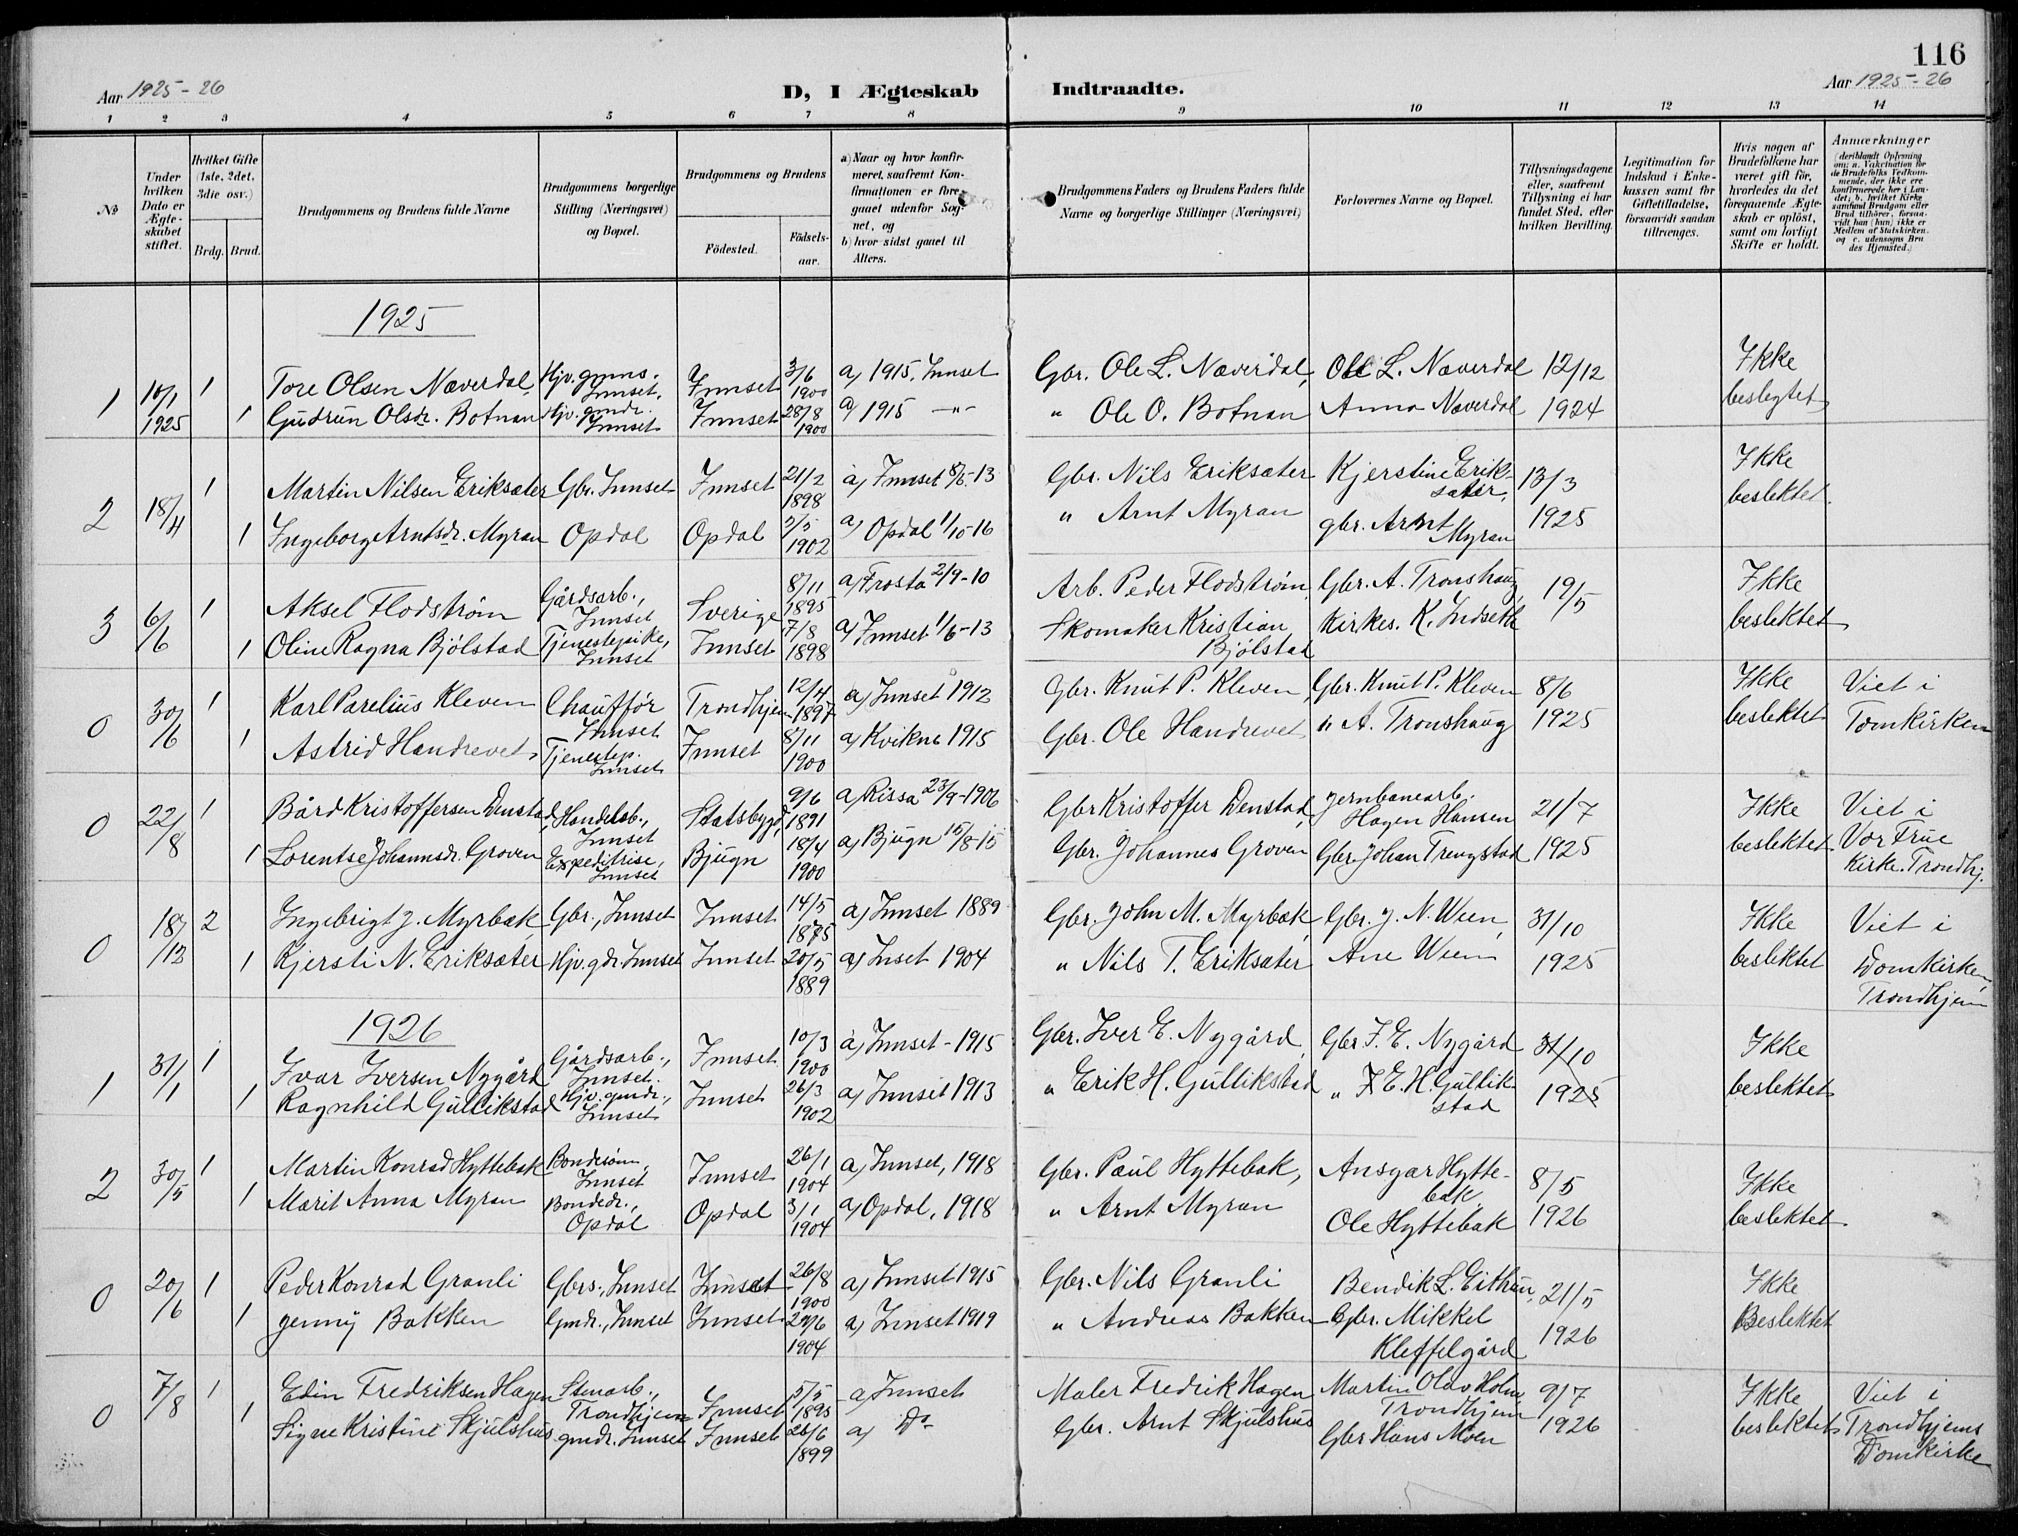 116
Aar 1925-26
D, I Ægteskab Indtraadte.
Aar 1925-26
1 2 3 4 5 6 7 8 9 10 11 12 13 14
№
Under hvilken Dato er Ægteskabet stiftet.
Hvilket Gifte (1ste, 2det, 3die osv.)
Brdg. Brud.
Brudgommens og Brudens fulde Navne
Brudgommens borgerlige Stilling (Næringsvei) og Bopæl.
Brudgommens og Brudens
Födested. Födsels-aar.
a) Naar og hvor konfirmeret, saafremt Konfirmationen er foregaaet udenfor Sognet, og
b) hvor sidst gaaet til Alters.
Brudgommens Faders og Brudens Faders fulde Navne og borgerlige Stillinger (Næringsvei)
Forlovernes Navne og Bopæl.
Tillysningsdagene eller, saafremt Tillysning ei har fundet Sted, efter hvilken Bevilling.
Legitimation for Indskud i Enkekassen samt for Giftetilladelse, forsaavidt saadan tiltrænges.
Hvis nogen af Brudefolkene har været gift för, hvorledes da det foregaaende Ægteskab er oplöst, samt om lovligt Skifte er holdt.
Anmærkninger (deriblandt Oplysning om: a. Vakcination for de Brudefolks Vedkommende, der ikke ere konfirmerede her i Landet; b. hvilket Kirkesamfund Brudgom eller Brud tilhörer, forsaavidt han (hun) ikke er Medlem af Statskirken, og c. udensogns Brudes Hjemsted.)
1925
1 10/1 1925 1 Tore Olsen Næverdal, Hjv. gmns. Innset, Innset 3/6 1900 a) 1915, Innset Gbr. Ole L. Næverdal, Ole L. Næverdal 12/12 Ikke
1 Gudrun Olsdr. Botnan Hjv. gmdr. Innset Innset 28/8 1900 a) 1915 —"— " Ole O. Botnan Anna Næverdal 1924 beslegtet
2 18/4 1 Martin Nilsen Eriksæter Gbr. Innset Innset 21/2 1898 a) Innset 8/6-13 Gbr. Nils Eriksæter Kjerstine Eriksæter, 13/3 Ikke
1 Ingeborg Arntsdr. Myran Opdal Opdal 2/5 1902 a) Opdal 1/10-16 " Arnt Myran gbr. Arnt Myran 1925 beslektet.
3 6/6 1 Aksel Flodstrøm Gårdsarb., Innset Sverige 8/11 1895 a) Frosta 2/9-10 Arb. Peder Flodstrøm Gbr. A. Tronshaug 19/5 Ikke
1 Oline Ragna Bjølstad Tjenestepike, Innset Innset 7/8 1898 a) Innset 1/6-13 Skomaker Kristian Bjølstad Kirkes. K. Indseth beslektet
0 30/6 1 Karl Parelius Kleven Chauffør Innset Trondhjem 12/4 1897 a) Innset 1912 Gbr. Knut P. Kleven, Gbr. Knut P. Kleven 8/6 Ikke Viet i
1 Astrid Handrevet, Tjenestep. Innset Innset 8/11 1900 a) Kvikne 1915 Gbr. Ole Handrevet " A. Tronshaug 1925 beslektet Domkirken
0 22/8 1 Bård Kristoffersen Denstad, Handelsb., Innset Statsbygd, 9/6 1891 a) Rissa 23/9-1906 Gbr Kristoffer Denstad, Jernbanearb. Hagen Hansen 21/7 Ikke Viet i
1 Lorentse Johannsdr. Groven Expeditrise, Innset Bjugn 18/4 1900 a) Bjugn 15/8-15 Gbr. Johannes Groven Gbr. Johan Trengstad 1925 beslektet Vor Frue Kirke. Trondhj.
0 18/12 2 Ingebrigt J. Myrbak Gbr., Innset Innset 14/5 1875 a) Innset 1889 Gbr. John M. Myrbak, Gbr. J. N. Ween, 31/10 Ikke Viet i
1 Kjersti N. Eriksæter Hjv. gdr. Innset Innset 20/5 1889 a) Inset 1904 " Nils T. Eriksæter Ane Ween 1925 beslektet Domkirken Trondhjem
1926
1 31/1 1 Ivar Iversen Nygård Gårdsarb., Innset. Innset 10/3 1900 a) Innset - 1915 Gbr. Iver E. Nygård, Gbr I. E. Nygård 31/10 Ikke
1 Ragnhild Gullikstad Hjv. gmdr., Innset Innset 26/3 1902 a) Innset 1913 " Erik H. Gullikstad " E. H. Gullikstad 1925 beslektet
2 30/5 1 Martin Konrad Hyttebak Bondesønn, Innset Innset 26/1 1904 a) Innset, 1918 Gbr. Paul Hyttebak, Ansgar Hyttebak 8/5 Ikke
1 Marit Anna Myran Bondedr., Opdal Opdal 3/1 1904 a) Opdal, 1918 " Arnt Myran Ole Hyttebak 1926 beslektet
0 20/6 1 Peder Konrad Granli Gbrs., Innset Innset 26/8 1900 a) Innset 1915 Gbr. Nils Granli Bendik L. Eithun, 21/5 Ikke
1 Jenny Bakken Gmdr., Innset Innset 1904 a) Innset 1919 " Andreas Bakken Gbr. Mikkel Kleffelgård 1926 Beslektet
0 7/8 1 Edin Fredriksen Hagen Stenarb., Trondhjem Innset 5/5 1895 a) Innset Maler Fredrik Hagen Martin Olav Holm, Trondhjem 9/7 Ikke Viet i
1 Signe Kristine Skjulshus gmdr. Innset Innset 26/6 1899 a) Do Gbr. Arnt Skjulshus Gbr Hans Moen 1926 beslektet Trondhjems Domkirke